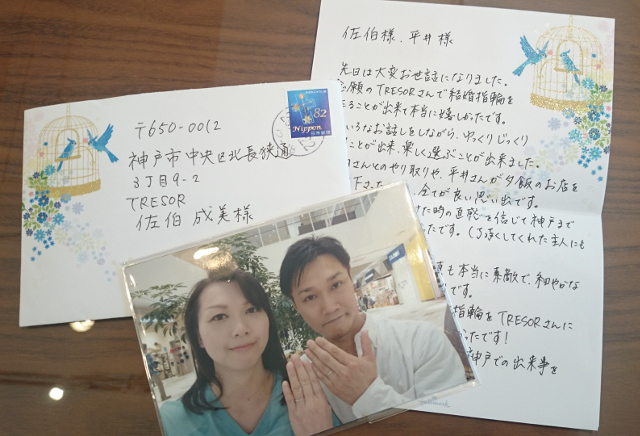 〒650-0012
神戸市中央区北長狭通
3丁目9-2
TRESOR
佐伯 成美様
82
Nippon
佐伯様、平井様
先日は大変お世話になりました。
念願のTRESORさんで結婚指輪を
ことが出来て本当に嬉しかったです。
いろんなお話をしながら、ゆっくりじっくり
ことが出来、楽しく選ぶことが出来ました。
さんとのやり取りや、平井さんが夕飯のお店を
全てが良い思い出です。
た時の直感を信じて神戸まで
たです。(了承してくれた主人にも
も本当に素敵で、細やかな
です。
指輪をTRESORさんに
ったです!
神戸での出来事を